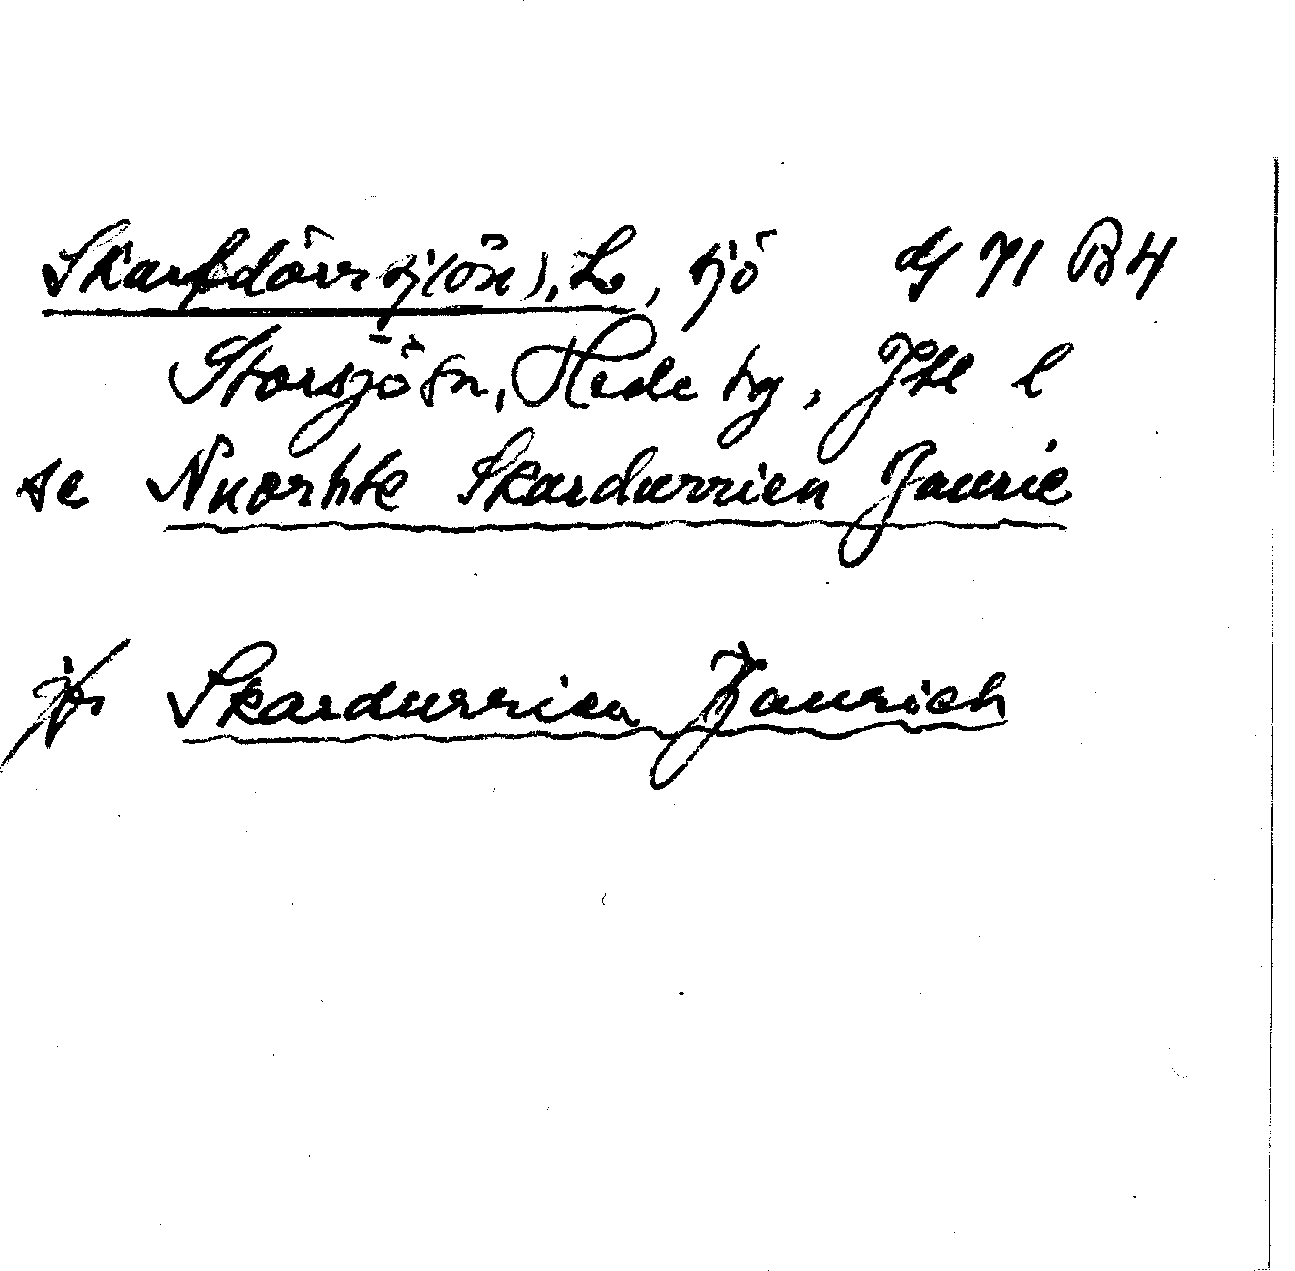 Skarfdörrsj(ön), L., sjö dy 71 B4
Storsjö sn, Hede tg, Jtl l
se Nuorhte Skardurrien Jaurie
jfr Skardurrien Jaurieh